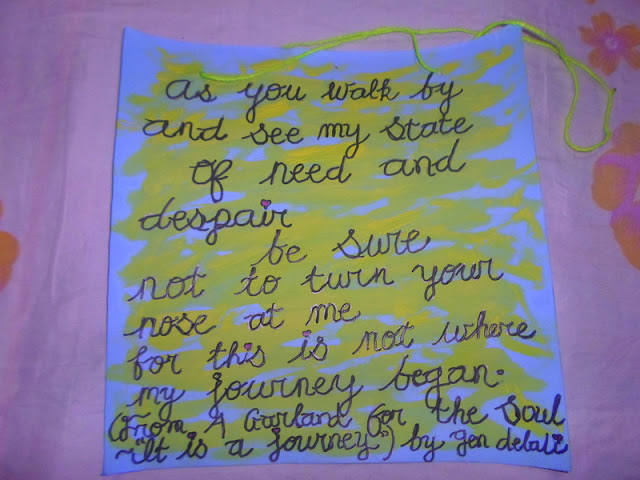 As you walk by
and see my state
Of need and
despair
be sure
not to turn your
nose at me
for this is not where
my journey began.
(From A Garland for the Soul
~"It is a journey") by gen delali